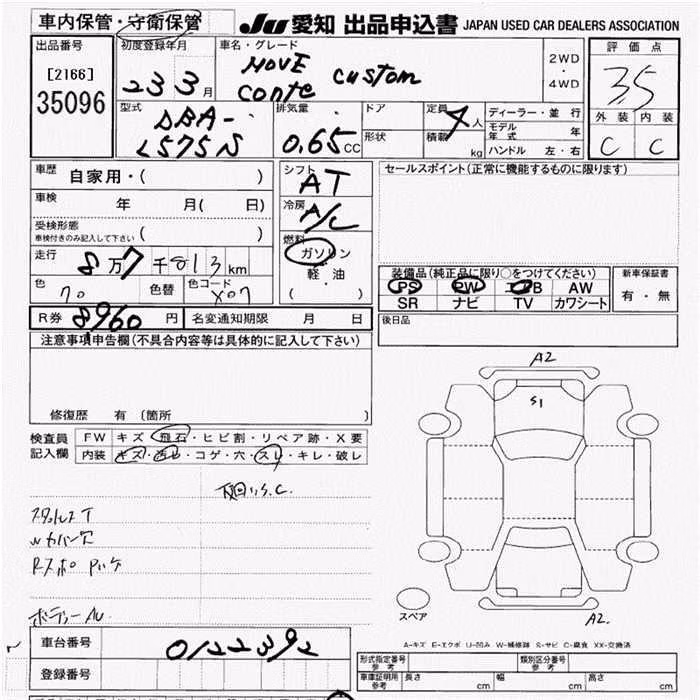 車内保管・守衛保管 JU 愛知 出品申込書 JAPAN USED CAR DEALERS ASSOCIATION
出品番号
[2166]
35096
初度登録年月
23 3月
車名・グレード
MOVE
conte custom
2WD
・
4WD
評価点
3.5
外装 内装
C C
型式
DBA-
L575S
排気量
0.65CC
ドア
形状
定員
4人
積載 kg
ディーラー・並 行
モデル年式 年
ハンドル 左・右
車歴
自家用・( )
車検 年 月( 日)
受検形態
車検付きのみ記入して下さい ( )
走行
8万7千813km
色 色替 色コード
X07
R券 8,960円 名変通知期限 月 日
シフト
AT
冷房
A/C
燃料
ガソリン
・
軽・油
( )
セールスポイント(正常に機能するものに限ります)
装備品(純正品に限り○をつけてください)
PS PW エアB AW
SR ナビ TV カワシート
新車保証書
有・無
後日品
注意事項申告欄(不具合内容等は具体的に記入して下さい)
修復歴 有 (箇所
検査員
記入欄
FW キズ・飛石・ヒビ割・リペア跡・X要
内装 キズ・汚レ・コゲ・穴・スレ・キレ・破レ
下廻りS.C.
Wカバー欠
ボディーAU
A2
S1
スペア
A2
A-キズ E-エクボ U-凹み W-補修跡 S-サビ C-腐食 XX-交換済
車台番号 0122392
登録番号
形式指定番号
参考
類別区分番号
参考
車庫証明用
参考
長さ cm 幅 cm 高さ cm